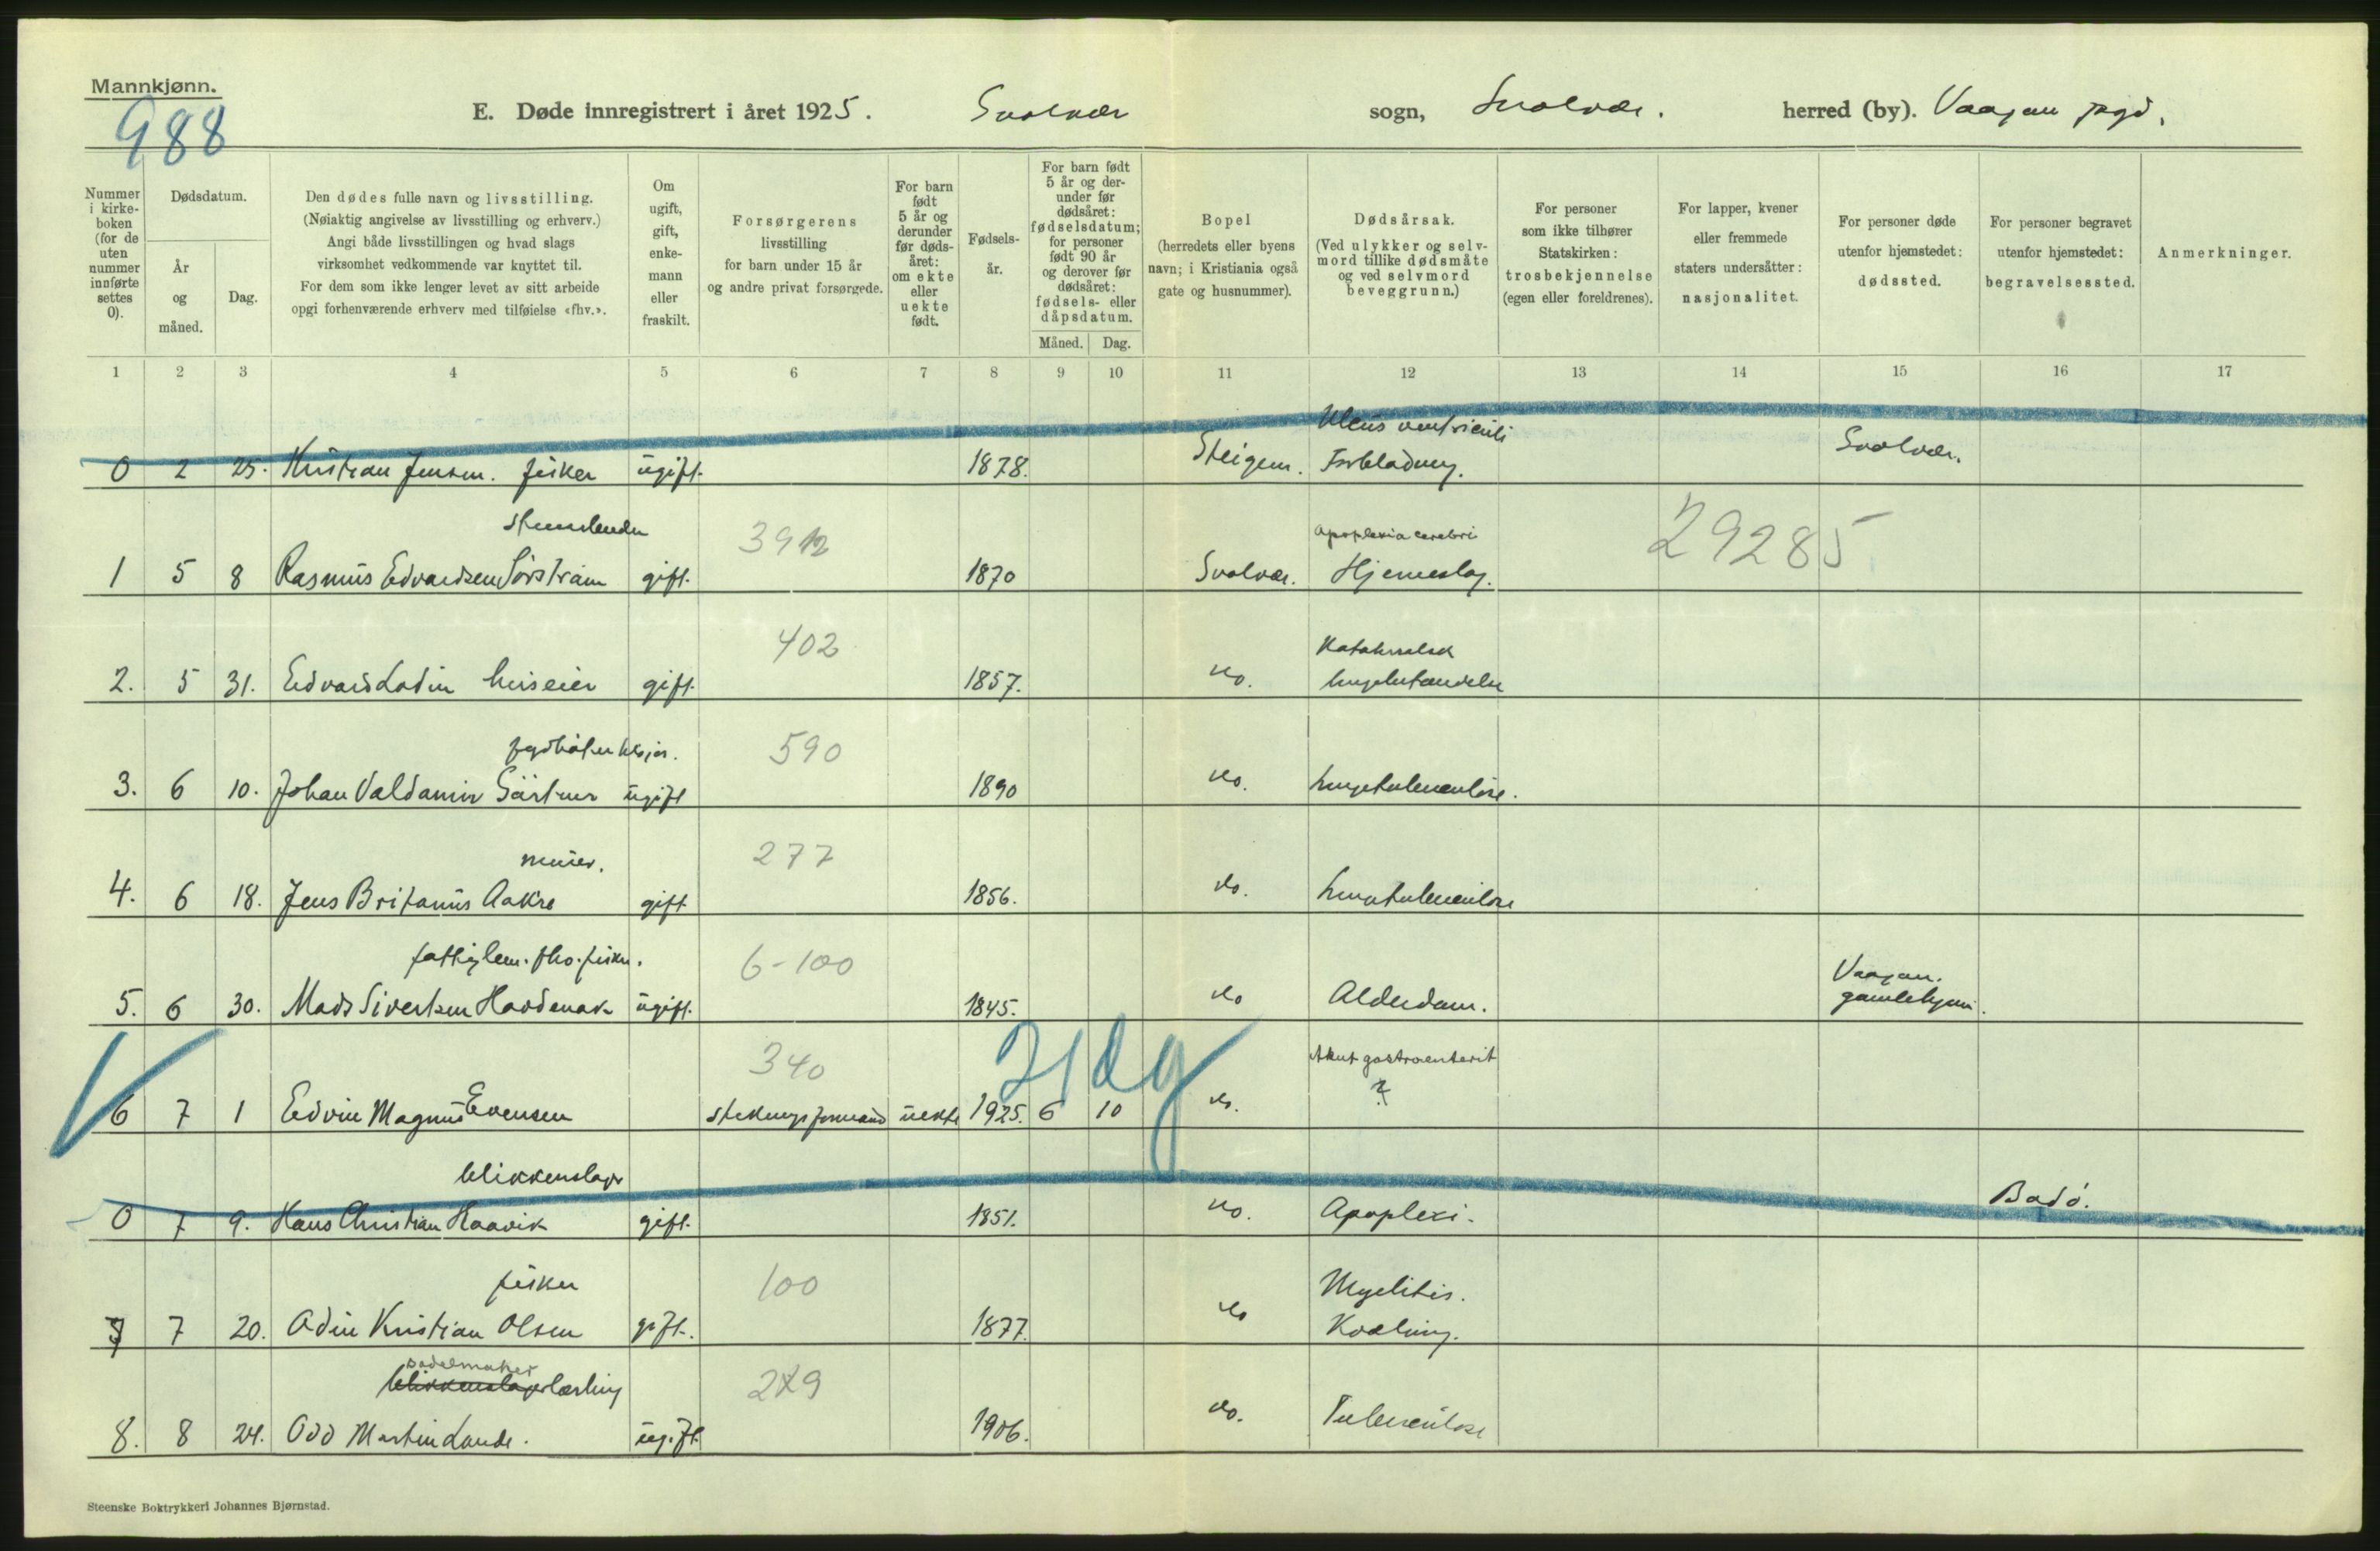 Mannkjønn.
988
E. Døde innregistrert i året 1925. Svolvær sogn, Svolvær. herred (by). Vaagan pgd.
Nummer i kirke-boken (for de uten nummer innførte settes 0).
Dødsdatum.
År og måned.
Dag.
Den dødes fulle navn og livsstilling.
(Nøiaktig angivelse av livsstilling og erhverv.)
Angi både livsstillingen og hvad slags
virksomhet vedkommende var knyttet til.
For dem som ikke lenger levet av sitt arbeide
opgi forhenværende erhverv med tilføielse «fhv.».
Om ugift, gift, enke-mann eller fraskilt.
Forsørgerens
livsstilling
for barn under 15 år
og andre privat forsørgede.
For barn født 5 år og derunder før døds-året: om ekte eller uekte født.
Fødsels-år.
For barn født 5 år og der-under før dødsåret: fødselsdatum; for personer født 90 år og derover før dødsåret: fødsels- eller dåpsdatum.
Måned. Dag.
Bopel
(herredets eller byens
navn; i Kristiania også
gate og husnummer).
Dødsårsak.
(Ved ulykker og selv-
mord tillike dødsmåte
og ved selvmord
beveggrunn.)
For personer
som ikke tilhører
Statskirken:
trosbekjennelse
(egen eller foreldrenes).
For lapper, kvener
eller fremmede
staters undersåtter:
nasjonalitet.
For personer døde
utenfor hjemstedet:
dødssted.
For personer begravet
utenfor hjemstedet:
begravelsessted.
Anmerkninger.
1 2 3 4 5 6 7 8 9 10 11 12 13 14 15 16 17
Ulcus ventriculi
0 2 25. Kristian Jensen. fisker ugift. 1878. Steigen. Forblødning. Svolvær.
3912 Apoplexia cerebri 29285
1 5 8 Rasmus Edvardsen Sörström gift. 1870 Svolvær. Hjerneslag.
402 Katahralsk
2. 5 31. Edvard Lodin huseier gift. 1857. do. lungebetændelse
590
3. 6 10. Johan Valdamir Gärtner ugift 1890 do. lungetuberculose.
murer. 277
4. 6 18. Jens Britanus Aakre gift 1856. do. lungetuberculose
fattiglem. fhv. fisker. 6-100 Vaagan
5. 6 30. Mads Sivertsen Havdenak ugift. 1845. do Alderdom. gamlehjem.
340 21 dg Akut gastroenterit
6 7 1 Edvin Magnus Evensen stekningsformand uekte 1925. 6 10 do. ?
blikkenslager
0 7 9. Hans Christian Haavik gift. 1851. do. Apoplexi. Bodö.
fisker 100 Myelitis.
7 7 20. Odin Kristian Olsen gift. 1877. do Kvælning.
sadelmaker
blikkenslagerlærling 2X9
8. 8 24. Odd Martin Lande. ugift 1906. do. Tuberculose
Steenske Boktrykkeri Johannes Bjørnstad.